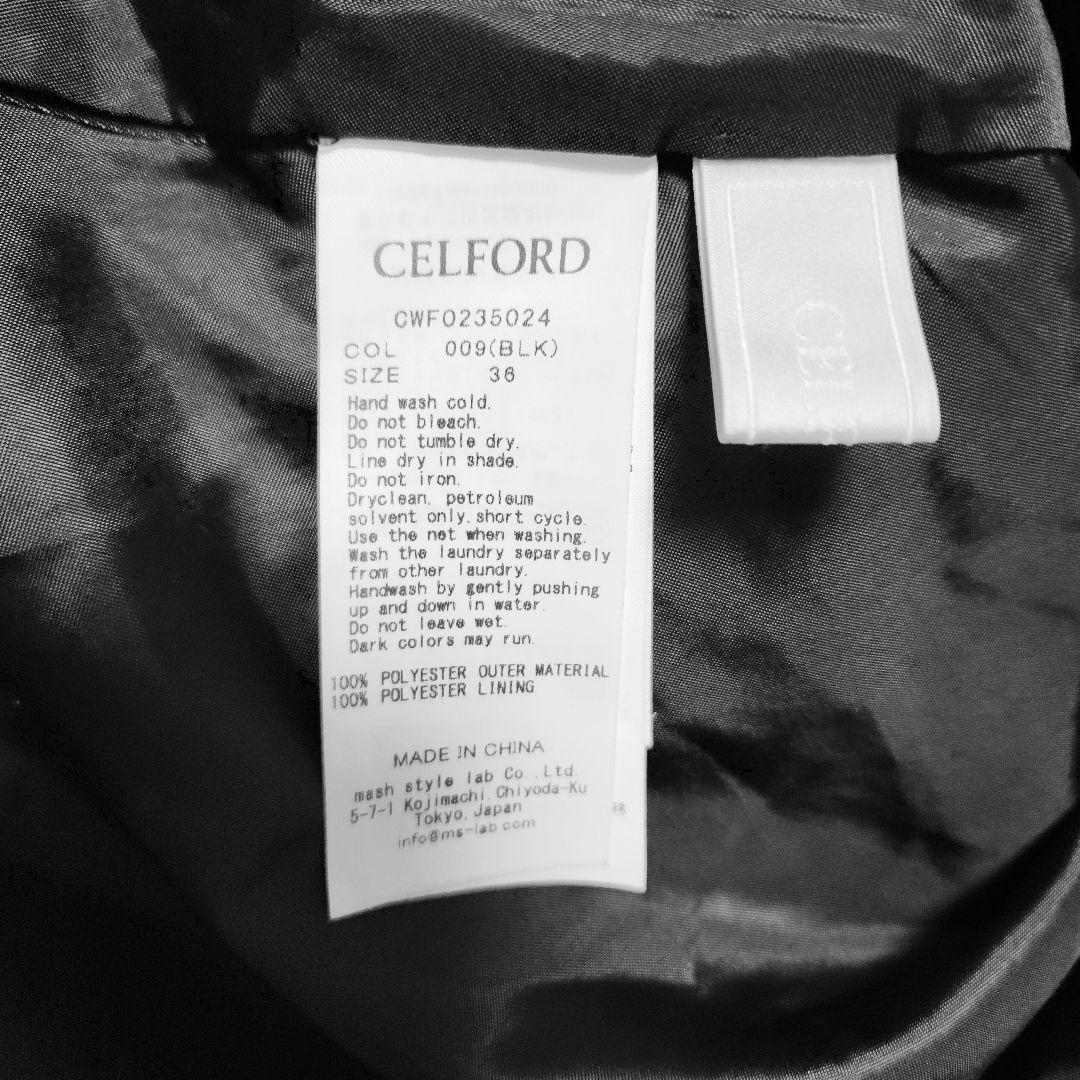 CELFORD
CWF0235024
COL 009(BLK)
SIZE 36
Hand wash cold.
Do not bleach.
Do not tumble dry.
Line dry in shade.
Do not iron.
Dryclean. petroleum
solvent only. short cycle.
Use the net when washing.
Wash the laundry separately
from other laundry.
Handwash by gently pushing
up and down in water.
Do not leave wet.
Dark colors may run.
100% POLYESTER OUTER MATERIAL
100% POLYESTER LINING
MADE IN CHINA
mash style lab Co.,Ltd.
5-7-1 Kojimachi.Chiyoda-Ku
Tokyo.Japan
info@ms-lab.com